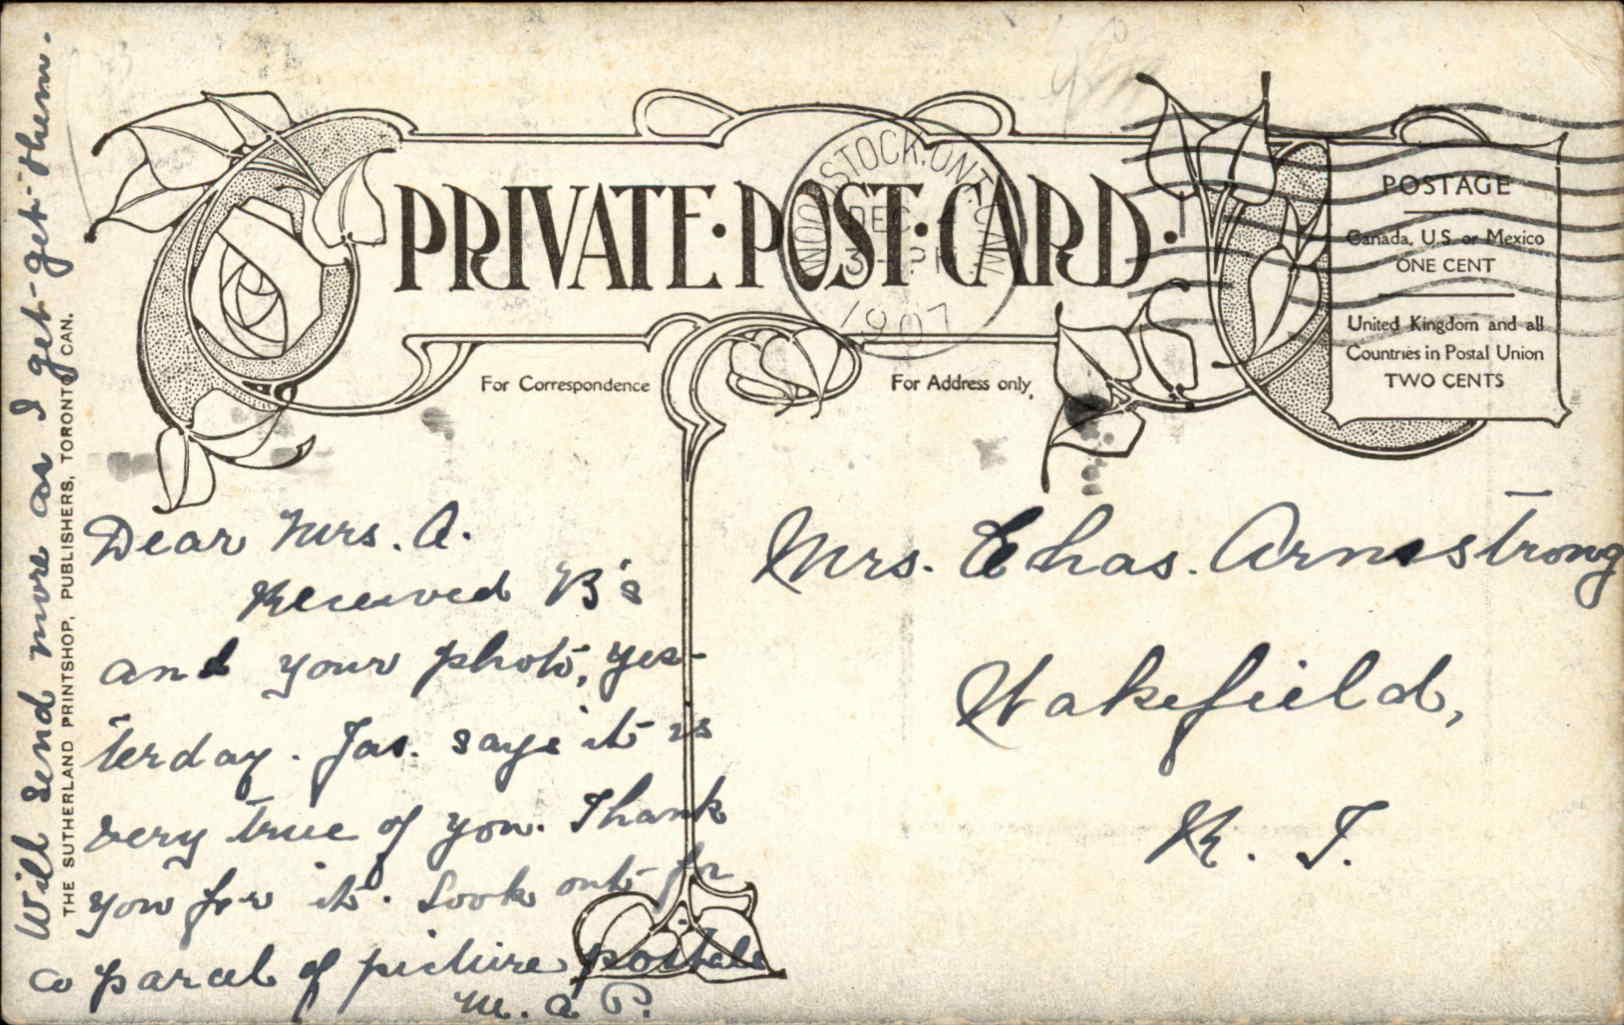 PRIVATE·POST·CARD·
WOODSTOCK·ONT. CAN
DEC
3- PM
1907
POSTAGE
Canada, U.S. or Mexico
ONE CENT
United Kingdom and all
Countries in Postal Union
TWO CENTS
For Correspondence
For Address only,
Dear Mrs. A.
Received B's
and your photo, yes-
terday. Jas. says it is
very true of you. Thank
you for it. Look out for
a parcel of picture postals
M. A P.
Will send more as I get-get-them.
THE SUTHERLAND PRINTSHOP, PUBLISHERS, TORONTO CAN.
Mrs. Chas. Armstrong
Wakefield,
R. I.